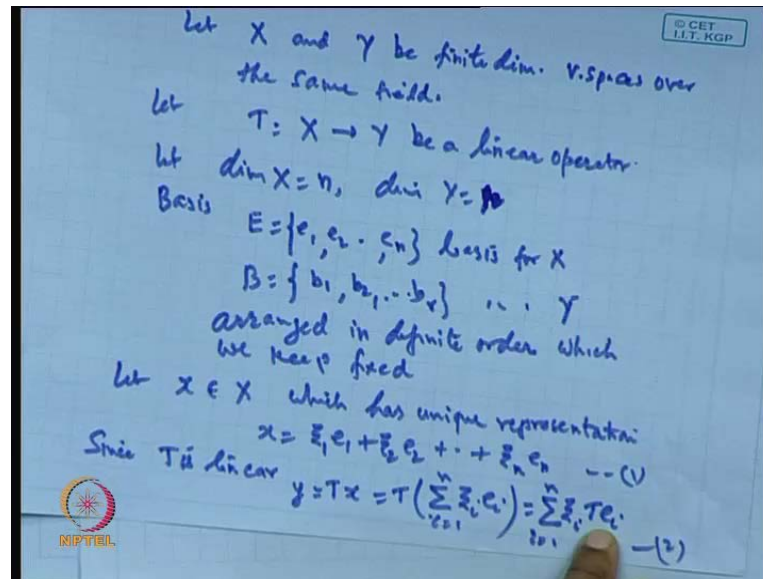 © CET
I.I.T. KGP
Let X and Y be finite dim. v. spaces over
the same field.
Let T: X → Y be a linear operator.
Let dim X = n, dim Y =
Basis
E = {e₁, e₂ . , eₙ} basis for X
B = {b₁, b₂, ... bᵣ} " . Y
arranged in definite order which
we keep fixed
Let x ∈ X which has unique representation
x = ξ₁e₁ + ξ₂e₂ + ·· + ξₙeₙ -- (1)
Since T is linear
y = Tx = T(∑ᵢ₌₁ⁿ ξᵢeᵢ) = ∑ᵢ₌₁ⁿ ξᵢ Teᵢ —(2)
NPTEL